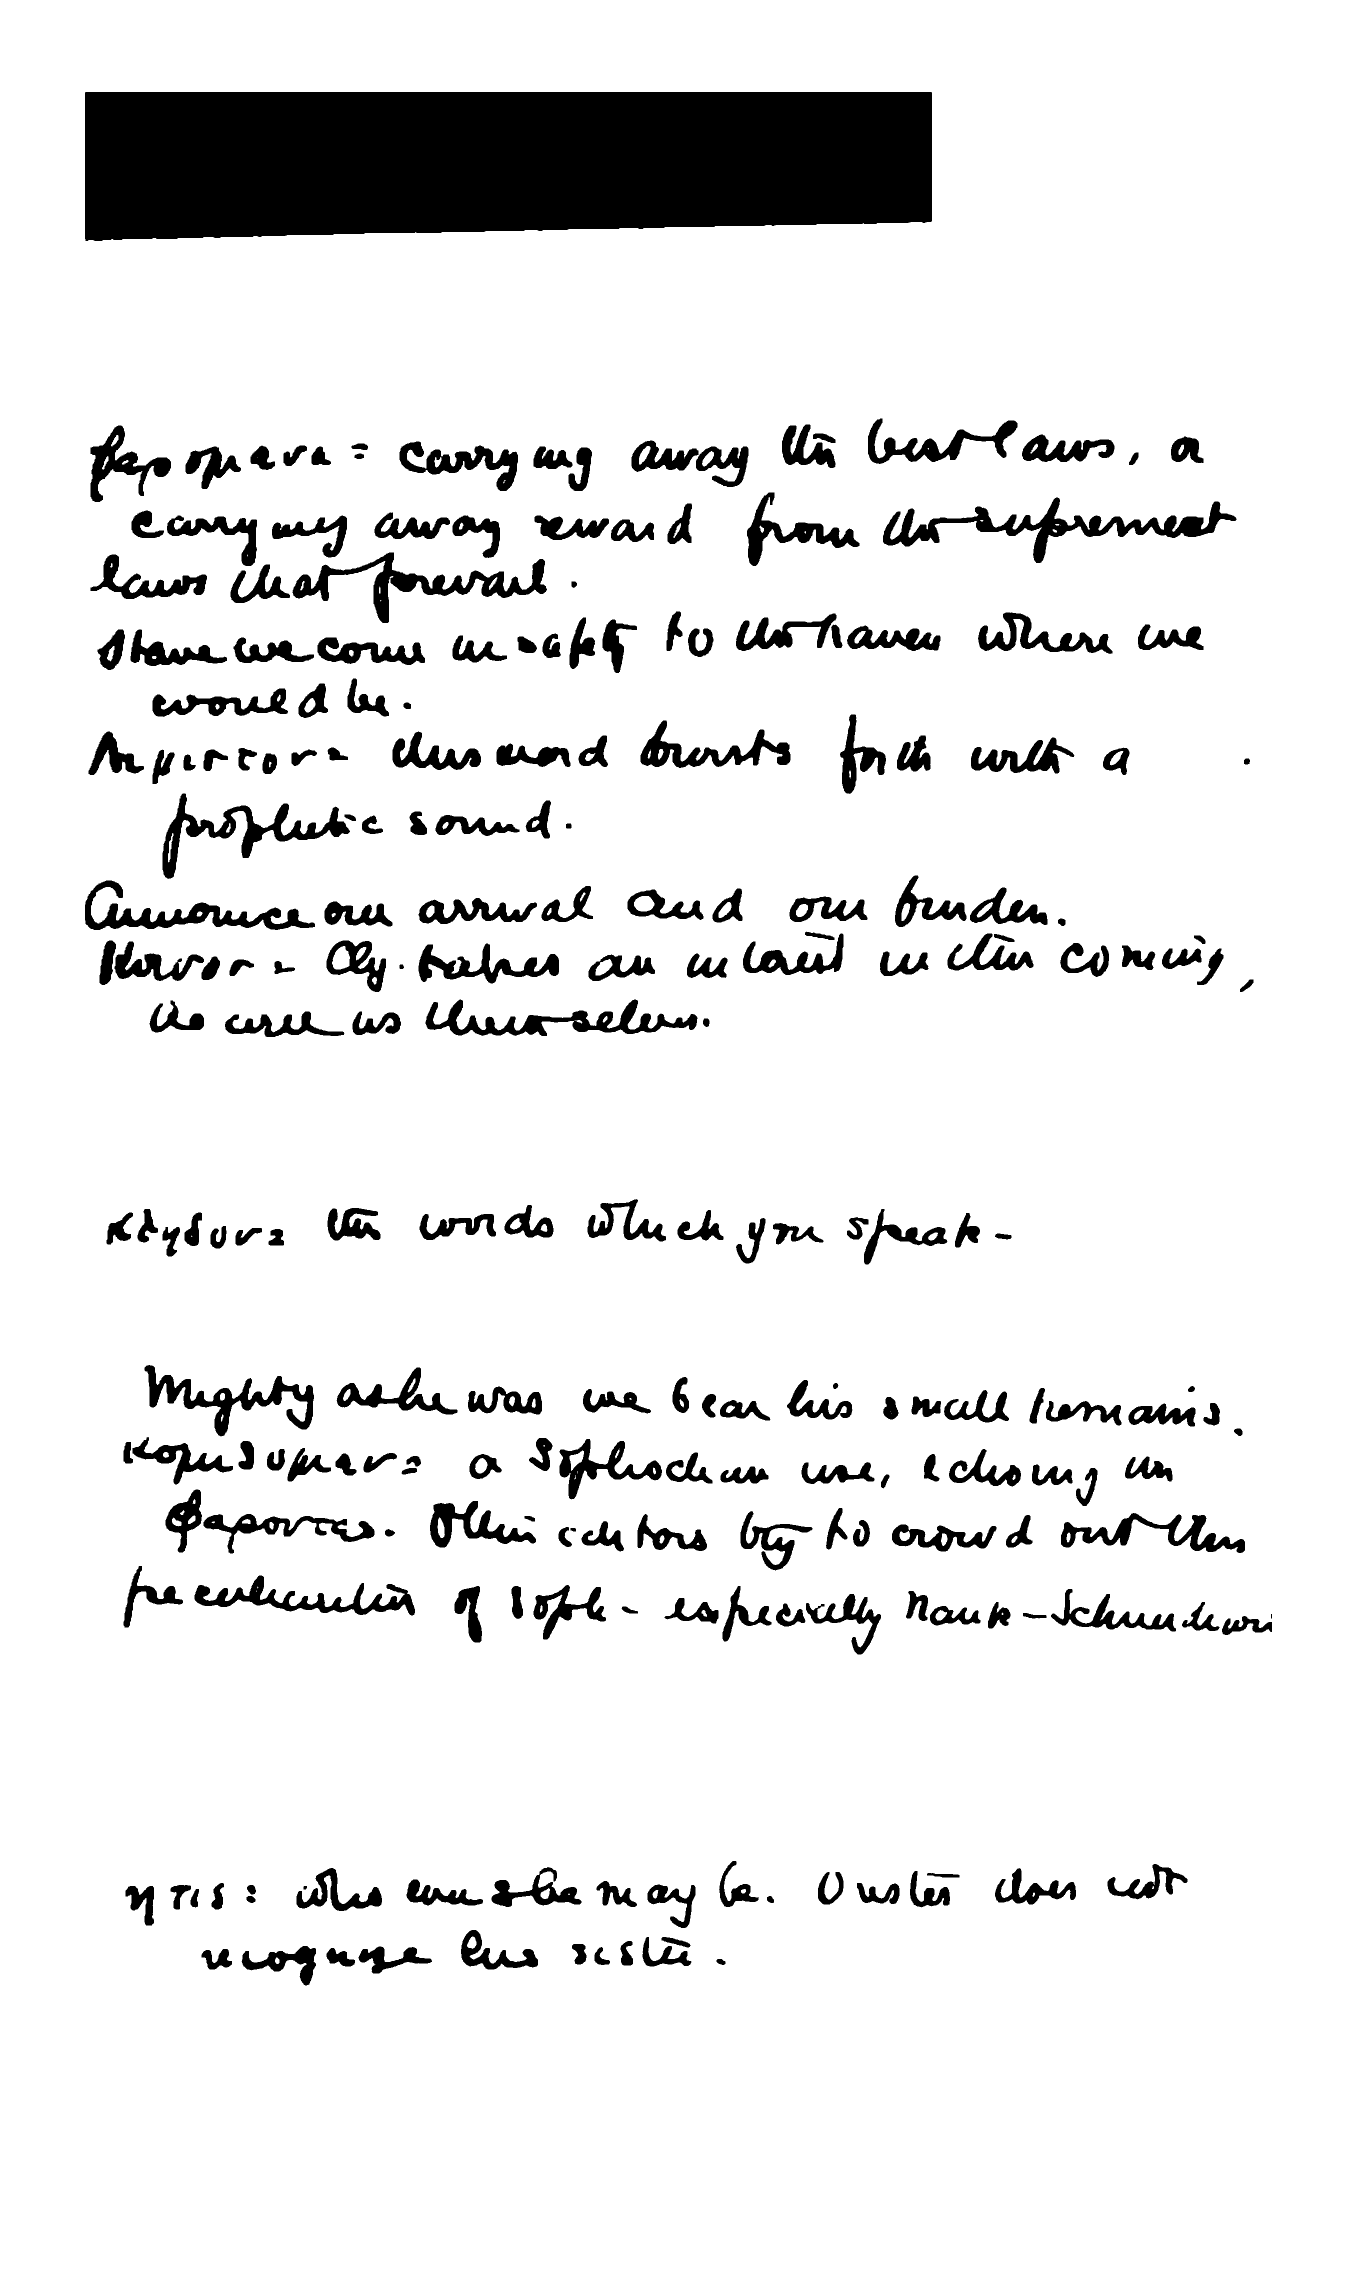 φερομέναν = carrying away the best laws, or
carrying away reward from the supremest
laws that prevail.
Have we come in safety to the haven where we
would be.
= this word bursts forth with a
prophetic sound.
Announce our arrival and our burden.
= Aeg. takes an interest in their coming,
as well as themselves.
κληδον = the words which you speak -
Mighty as he was we bear his small remains.
κομιζομεν = a Sophoclean use, echoing in
φεροντες. Other editors try to crowd out this
peculiarities of Soph - especially Nauk - Schneidewi
ητις : who ever she may be. Orestes does not
recognize his sister.